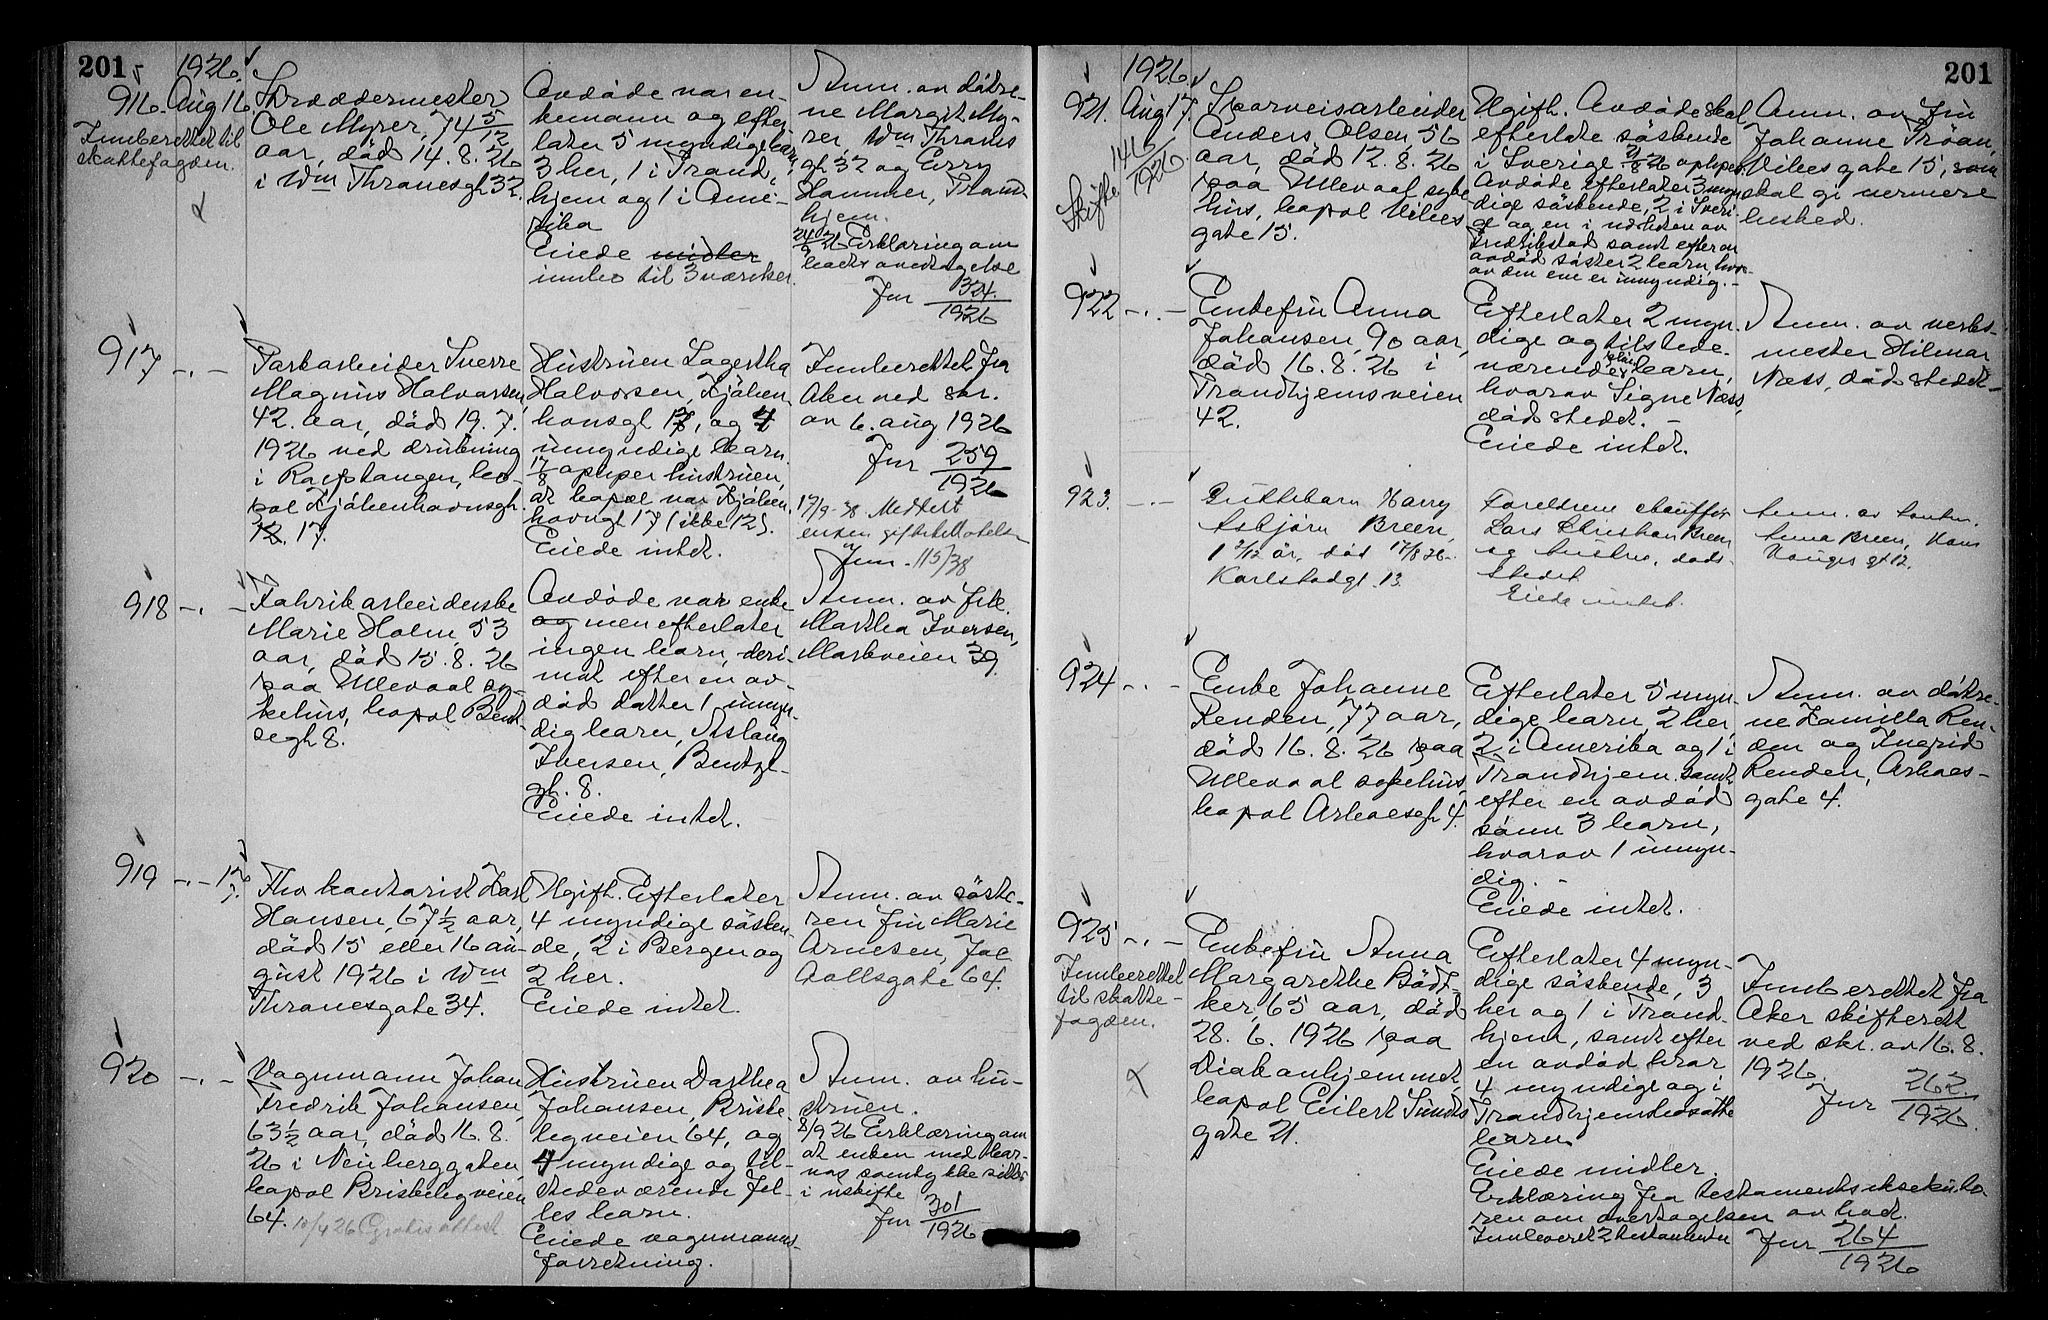 201
1926.
916. Aug 16
Innberettet til
skattefogden.
Skræddermester
Ole Myrer, 74 5/12
aar, död 14.8.26
i Wm Thranesgt 32.
Avdöde var en-
kemann og efter
later 5 myndige barn,
3 her, 1 i Trond,
hjem og 1 i Ame-
rika
Eiede midler
innbo til 3 værelser.
Anm. av dötre-
ne Margit My-
rer, Wm Thranes
gt 32 og
Hammer, Trond
hjem.
24/9 26 Erklæring om
boets overtagelse
Jnr 324/1926
917 -.-
Parkarbeider Sverre
Magnus Halvorsen,
42 aar, död 19.7.
1926 ved drukning
i Roefstangen, bo-
pol Kjöbenhavnsgt.
12. 17.
Hustruen Lagertha
Halvorsen, Kjöben
havnsgt 17, og 4
umyndige barn.
17/8 opluper hustruen,
at bopæl var Kjöben
havngt 17 (ikke 12).
Eiede intet.
Innberettet fra
Aker ved skr.
av 6. aug 1926
Jnr 259/1926
17/9-38 Meddelt
enken gifteattest
Jnr. 115/38
918 -.-
Fabrikarbeiderske
Marie Holm, 53
aar, död 15.8.26
paa Ullevaal sy-
kehus, bopol Bent
segt 8.
Avdöde var enke
og men efterlater
ingen barn, deri-
mot efter en av-
död datter 1 umyn-
dig barn, Aslaug
Iversen, Bentze-
gt. 8.
Eiede intet.
Anm. av frk.
Martha Iversen,
Markveien 39.
919 -.- 17/
Fhv kontorist Karl
Hansen, 67½ aar,
död 15 eller 16 au-
gust 1926 i Wm
Thranesgate 34.
Ugift. Efterlater
4 myndige sösken-
de, 2 i Bergen og
2 her.
Eiede intet.
Anm. av söste-
ren fru Marie
Arnesen, Jac
Aallsgate 64.
920 -.-
Vognmann Johan
Fredrik Johansen,
63½ aar, död 16.8.
26 i Neuberggaten,
bopol Briskebyveien
64. 10/9 26 Gratis attest
Hustruen Dorthea
Johansen, Briske-
byveien 64, og
4 myndige og til-
stedeværende fel-
les barn.
Eiede vognmanns-
forretning.
Anm. av hu-
struen.
8/9 26 Erklæring om
at enken med bar-
nas samtykke sitter
i uskifte
Jnr 301/1926
201
1926
921. Aug 17.
Skifte 1416/1926.
Sporveisarbeider
Anders Olsen, 56
aar, död 12.8.26
paa Ullevaal syke
hus, bopol Vibes
gate 15.
Ugift. Avdöde skal
efterlate söskende
i Sverige 21/8 26 opluper.
Avdöde efterlater 3 myn
dige söskende, 2 i Sveri-
ge og en i nærheten av
Fredrikstad samt efter en
avdöd söster 2 barn, hvor-
av den ene er umyndig.-
Anm. av fru
Johanne Tröan,
Vibesgate 15, som
skal gi nærmere
besked.
922 -.-
Enkefru Anna
Johansen, 90 aar,
död 16.8.26 i
Trondhjemsveien
42.
Efterlater 2 myn.
dige og tilstede-
værende barn,
hvorav Signe Næss,
dödsstedet.-
Eiede intet.
Anm. av verks-
mester Hilmar
Næss, dödsstedet-
923. -.-
Puttebarn Harry
Asbjörn Breen,
1 2/12 år, död 17/8 26.
Karlstadgt. 13.
Foreldrene chaufför
Lars Christian Breen
og hustru, döds-
stedet
Eiede intet.
Anm. av tanten
Anna Breen, Hans
Hauges gt 12.
924 -.-
Enke Johanne
Renden, 77 aar,
död 16.8.26 paa
Ullevaal sykehus,
bopol Arboesgt 4.
Efterlater 5 myn-
dige barn, 2 her,
2 i Amerika og 1 i
Trondhjem samt
efter en avdöd
sönn 3 barn,
hvorav 1 umyn-
dig.-
Eiede intet.
Anm. av dötre-
ne Kamilla Ren-
den og Ingrid
Renden, Arboes-
gate 4.
925 -.-
Innberettet
til skatte-
fogden.
Enkefru Anna
Margarethe Bödt-
ker, 65 aar, död
28.6.1926 paa
Diakonhjemmet,
bopol Eilert Sundts
gate 21.
Efterlater 4 myn-
dige söskende, 3
her og 1 i Trond-
hjem, samt efter
en avdöd bror
4 myndige og i
Trondhjem bosatte
barn
Eiede midler.
Erklæring fra testamentseksekuto-
ren om overtagelsen av boet.
Innleveret 2 testamenter Jnr 264/1926
Innberettet fra
Aker skifterett
ved skr. av 16.8.
1926.
Jnr 262/1926.